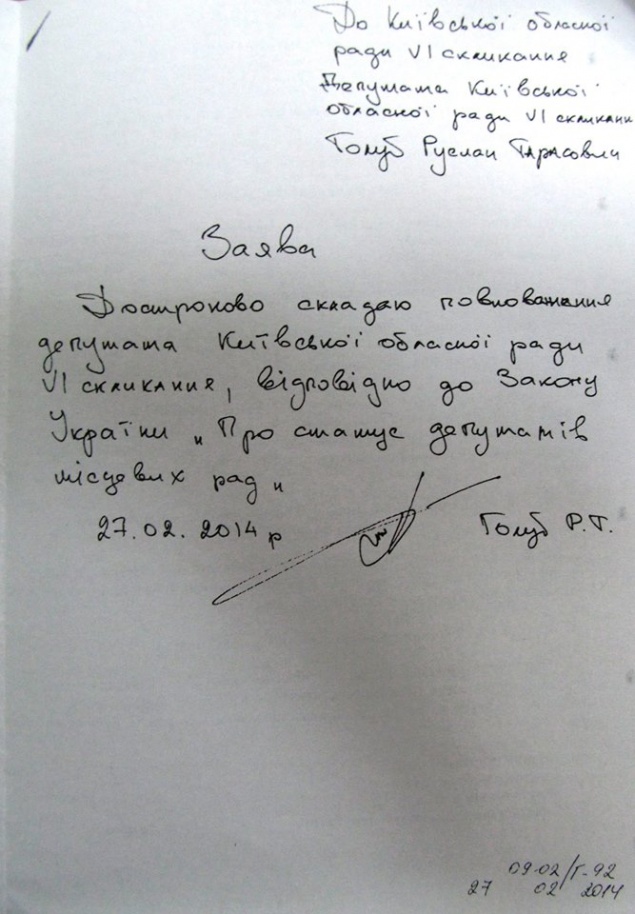 До Київської обласної
ради VI скликання
Депутата Київської
обласної ради VI скликанн
Голуб Руслан Тарасович
Заява
Достроково складаю повноваження
депутата Київської обласної ради
VI скликання, відповідно до Закону
України „Про статус депутатів
місцевих рад"
27.02.2014 р Голуб Р.Т.
09-02/Г-92
27 02 2014